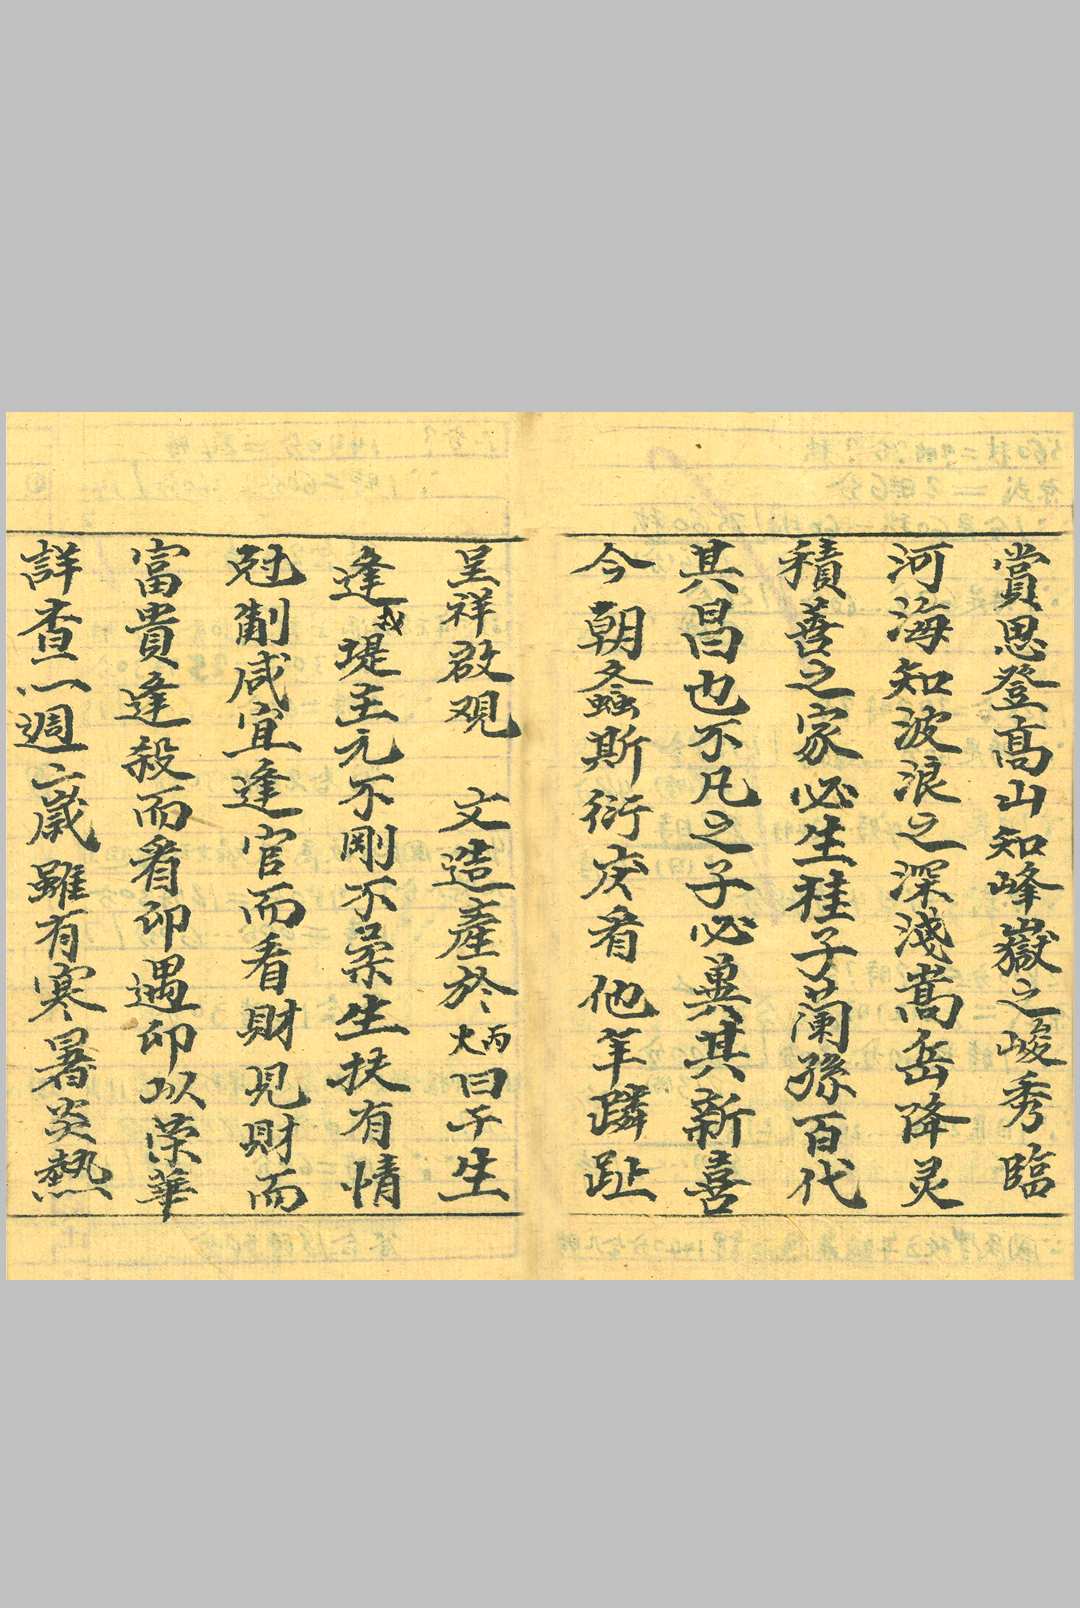 賞思登高山知峰嶽之峻秀臨
河海知波浪之深淺嵩岳降灵
積善之家必生桂子蘭孫百代
其昌也不凡之子必異其新喜
今朝螽斯衍庆看他年麟趾
呈祥啟观 文造產於丙火日子生
逢戊堤主元不剛不柔生扶有情
尅制咸宜逢官而看財見財而
富貴逢殺而看印遇印以荣華
詳查一週亡歲雖有寒暑炎熱